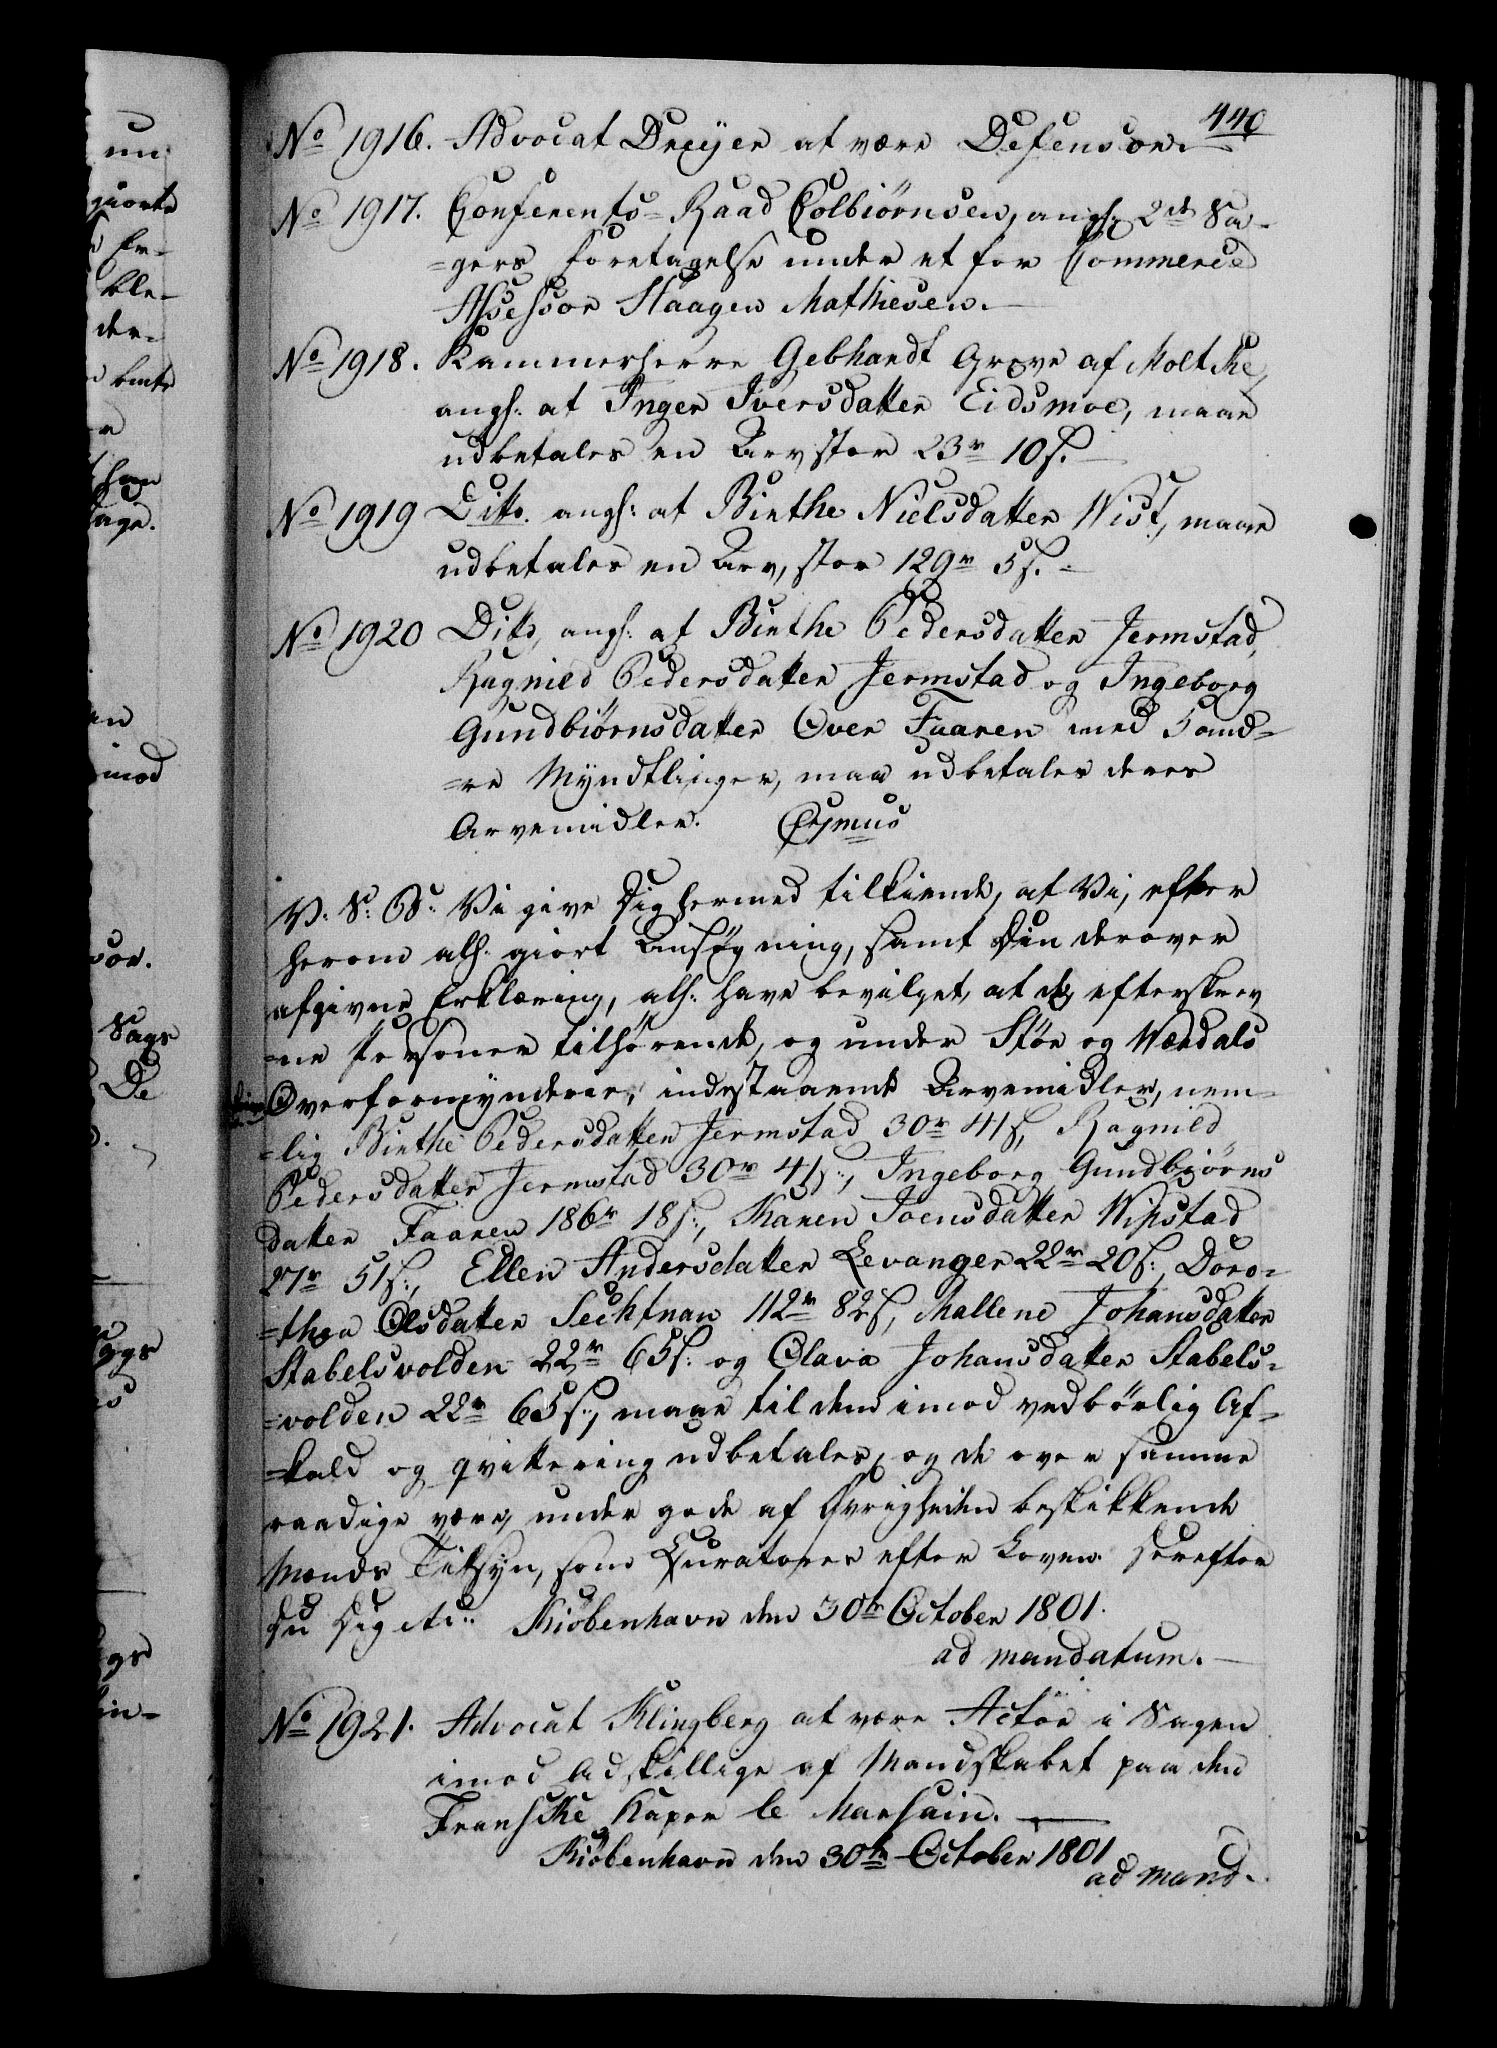 440
No 1916. Advocat Dreyer at være Defensor.
No 1917. Conferents-Raad Colbiørnsen, angh: 2de Sa-
-gers Foretagelse under et for Commerce
Assessor Haagen Mathiesen.
No 1918. Kammerherre Gebhardt Greve af Moltke,
angh: at Inger Iversdatter Eidsmoe, maae
udbetales en Arv stor 23r 10s.
No 1919 Dito. angh: at Birthe Nielsdatter Wist, maae
udbetales en Arv, stor 129r 5s.
No 1920 Dito, angh: at Birthe Pedersdatter Jermstad,
Ragnild Pedersdatter Jermstad og Ingeborg
Gundbiørnsdatter Over Faaren med 5 and-
-re Myndtlinger, maa udbetales deres
Arvemidler. Expmus
V: S: B: Vi give Dig hermed tilkiende, at Vi, efter
herom alh: giort Ansøgning, samt Din derover
afgivne Erklæring, alh: have bevilget, at de efterskrev
-ne Personer tilhørende, og under Stør og Værdals
Overformynderie, indestaaende Arvemidler, nem-
-lig Birthe Pedersdatter Jermstad 30r 41s, Ragnild
Pedersdatter Jermstad 30r 41s:, Ingeborg Gundbiørns
datter Faaren 186r 18s:, Karen Joensdatter Wipstad
27r 51s:, Ellen Andersdatter Levanger 22r 20s:, Doro-
-thea Olsdatter Sechtnan 112r 82s, Mallene Johansdatter
Stabelsvolden 22r 65s: og Olava Johansdatter Stabels-
-volden 22r 65s:, maae til dem imod vedbørlig Af-
-kald og qvittering udbetales, og de over samme
raadige være, under gode af Øvrigheden beskikkende
Mænds Tilsyn, som Curatorer efter Loven. Derefter
Du Dig etc: Kiøbenhavn den 30te October 1801.
ad mandatum.
No 1921. Advocat Klingberg at være Actor i Sagen
imod Adskillige af Mandskabet paa den
Franske Kaper le Marsuin.
Kiøbenhavn den 30te October 1801
ad mand.